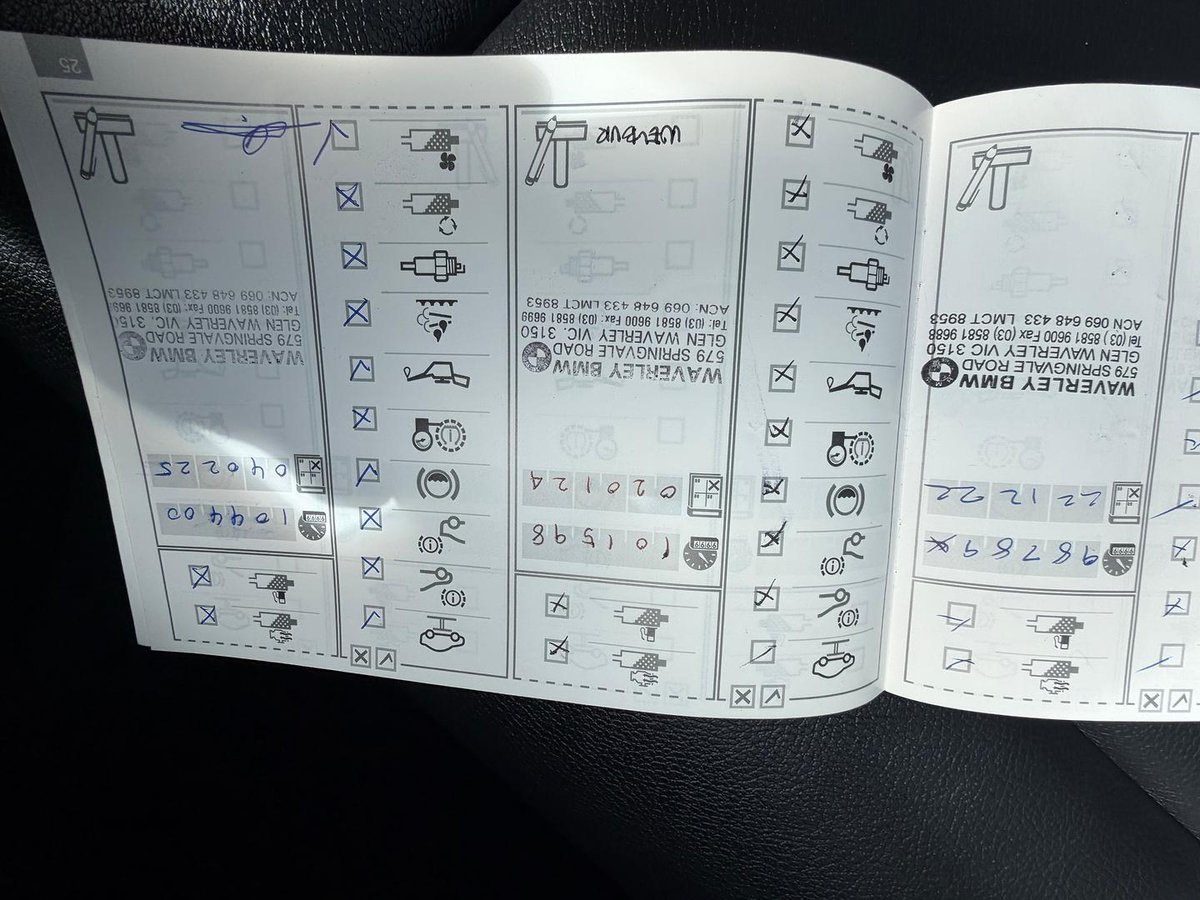 98789X
22 12 22
WAVERLEY BMW
579 SPRINGVALE ROAD
GLEN WAVERLEY VIC 3150
Tel (03) 8581 9600 Fax (03) 8581 9688
ACN 069 648 433 LMCT 8953
101598
020124
WAVERLEY BMW
579 SPRINGVALE ROAD
GLEN WAVERLEY VIC. 3150
Tel: (03) 8581 9600 Fax: (03) 8581 9699
ACN: 069 648 433 LMCT 8953
104400
040225
WAVERLEY BMW
579 SPRINGVALE ROAD
GLEN WAVERLEY VIC. 3150
Tel: (03) 8581 9600 Fax: (03) 8581 969
ACN: 069 648 433 LMCT 8953
25